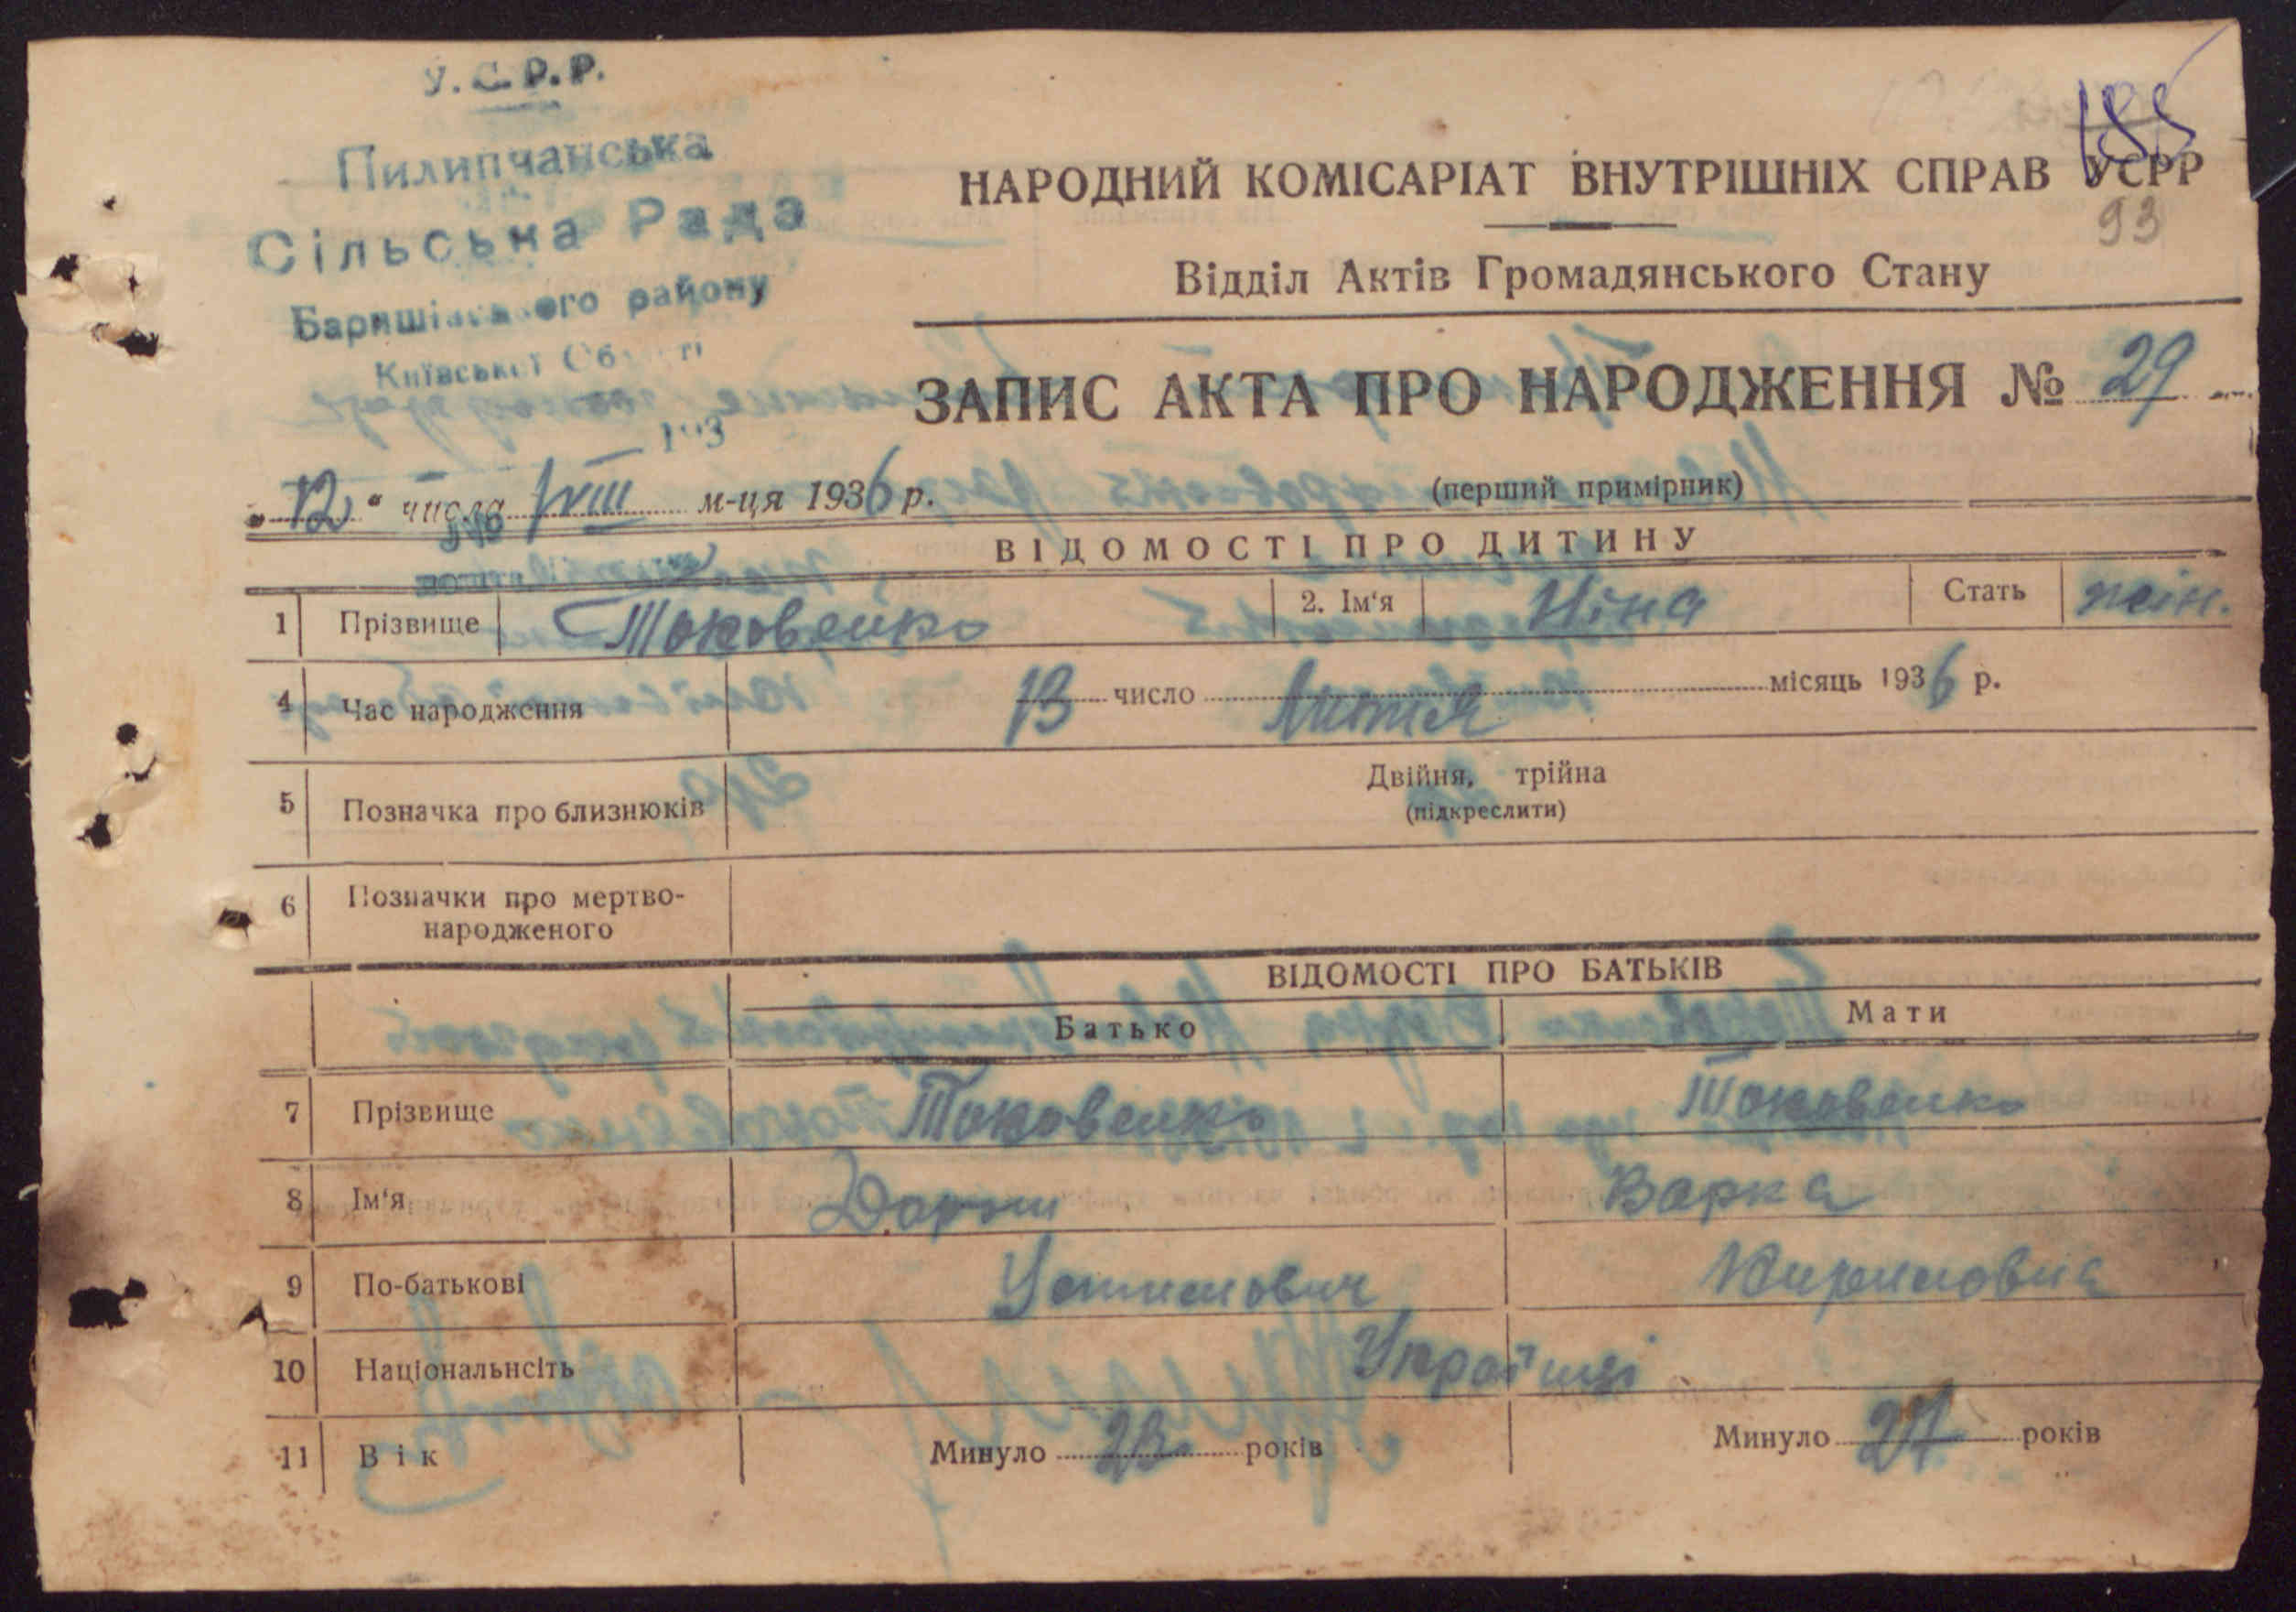 У.С.Р.Р.
Пилипчанська
Сільська Рада
Баришівського району
Київської Області
193
185
НАРОДНИЙ КОМІСАРІАТ ВНУТРІШНІХ СПРАВ УСРР
93
Відділ Актів Громадянського Стану
ЗАПИС АКТА ПРО НАРОДЖЕННЯ № 29
„12“ числа VIII м-ця 1936 р.
(перший примірник)
ВІДОМОСТІ ПРО ДИТИНУ
1 Прізвище Токовенко 2. Ім‘я Ніна Стать жін.
4 Час народження 13 число місяць 1936 р.
5 Позначка про близнюків Двійня, трійна
(підкреслити)
6 Позначки про мертво-
народженого
ВІДОМОСТІ ПРО БАТЬКІВ
Батько Мати
7 Прізвище Токовенко Токовенко
8 Ім‘я Варка
9 По-батькові Устимович
10 Національнсіть Українці
11 Вік Минуло 28 років Минуло 27 років